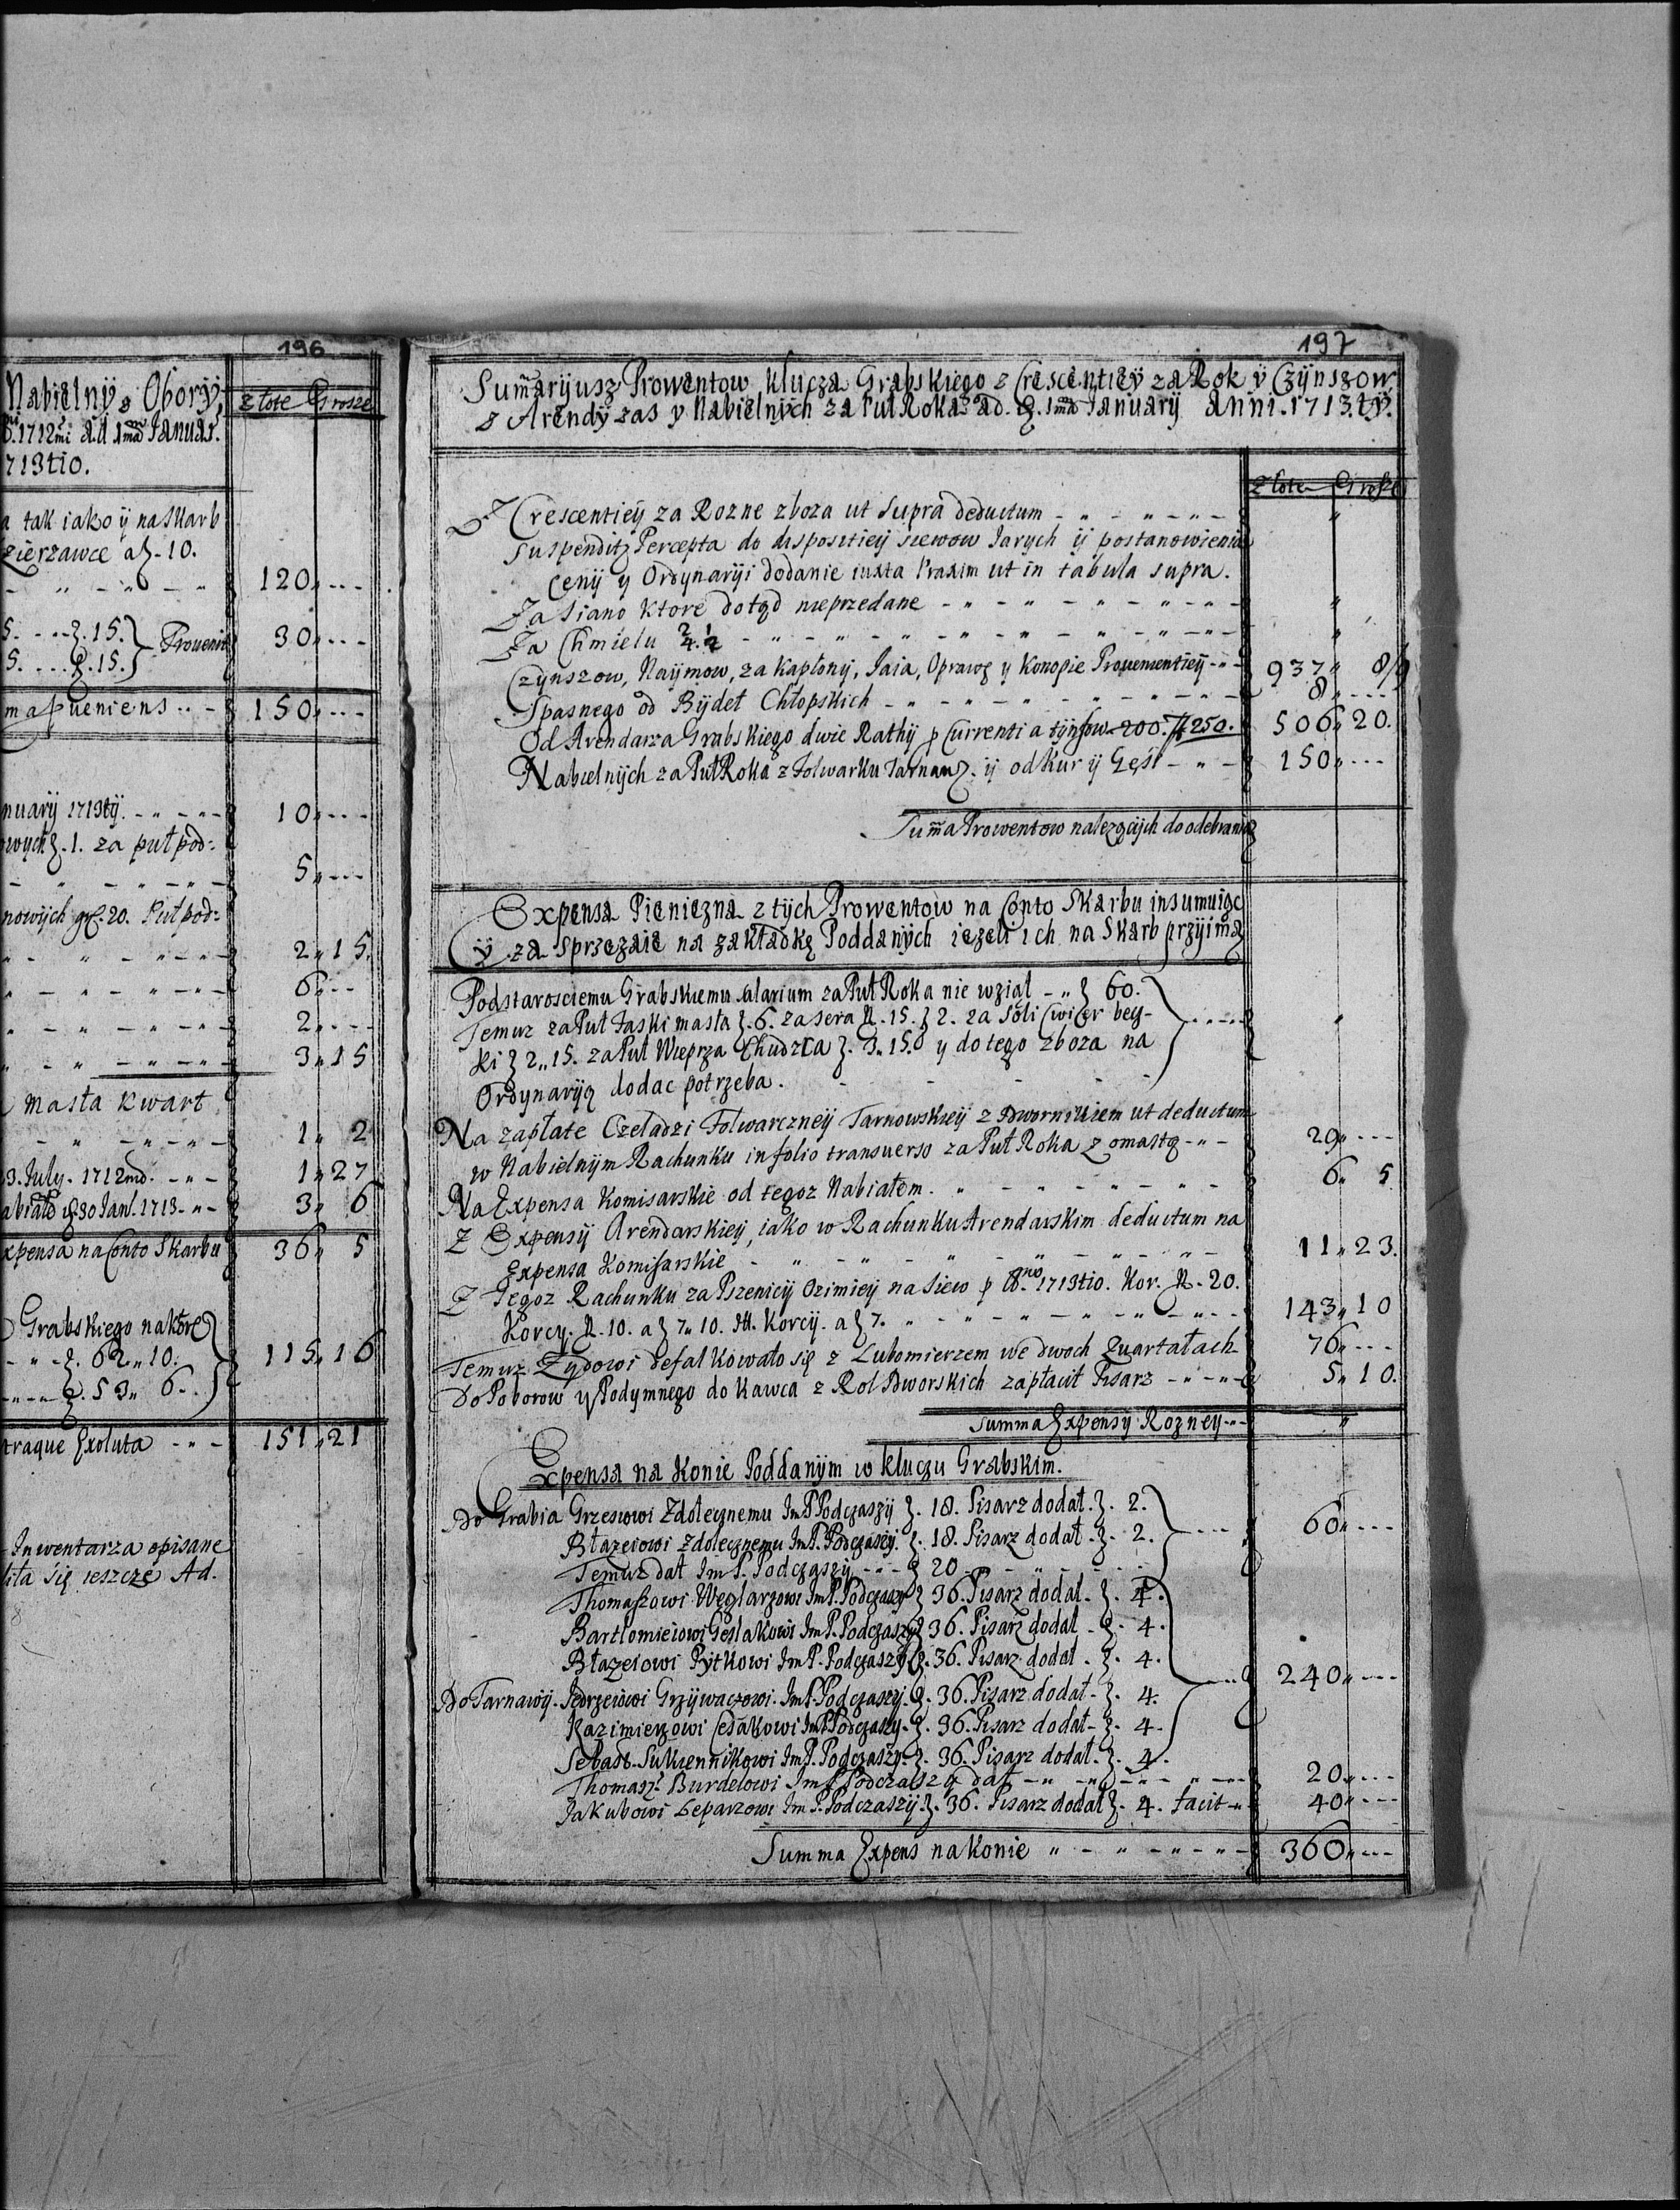 196
Nabielnÿ z Oborÿ,
Złote Grosze
1712mi ad 1ma Januar.
713tio.
a tak iako ÿ na Skarb
zierzawce a ƶ. 10.
120 „ ---
5. - - ƶ. 15. } Prouenit
5. - - ƶ. 15.
30 „ ---
150 „ ---
nuarÿ 1713tÿ. - „ - „ -
10 „ ---
owÿch ƶ. 1. za puł pod:
5 „ ---
nowÿch gr. 20. Puł pod:
2 „ 15.
6 „ ---
2 „ ---
3 „ 15
Masła kwart
1 „ 2
3. July. 1712mo. - „ -
1 „ 27
30 Jan. 1713 - „ -
3 „ 6
xpensa na Conto Skarbu
36 „ 5
Grabskiego na które
- „ - ƶ. 62 „ 10.
115 „ 16
- „ - ƶ. 53 „ 6 - .
traque Exoluta - „ -
151 „ 21
Inwentarza opisane
iła się ieszcze Ad.
197
Summarÿusz Prowentow Klucza Grabskiego z Crescentieÿ za Rok ÿ Czÿnszow
z Arendÿ zas y Nabielnÿch za Puł Roka ad 1ma Januarÿ Anni. 1713. tÿ.
Złote Grosze
Z Crescentieÿ za Rozne zboza ut Supra deductum - „ - „ - „ -
Suspenditur Percepta do disposÿtieÿ siewow Jarych ÿ postanowienia
Cenÿ y Ordÿnarÿi dodanie iuxta Praxim ut in tabula supra.
Za Siano ktore dotąd nieprzedane - „ - „ - „ - „ - „ -
Za Chmielu - „ - „ - „ - „ - „ -
Czynszow, Naÿmow, za Kapłony, Jaia, Oprawę y Konopie - „ - 937 „ 8/9
Spasnego od Bÿdeł Chłopskich - „ - „ - „ - 8 „ ---
Od Arendarza Grabskiego dwie Rathÿ p Currenti a tynfow 200. 250. 506 „ 20.
Nabielnÿch za Puł Roka z Folwarku ÿ od Kur ÿ Gęsi - „ - 150 „ ---
Summa Prowentow nalezącÿch do odebrania
Expensa Pieniezna z tÿch Prowentow na Conto Skarbu insumuiąc
ÿ za Sprzezaie na zakładkę Poddanÿch iezeli ich na Skarb przÿimą
Podstarosciemu Grabskiemu salarium za Puł Roka nie wziął - „ ƶ 60.
Temuz za Puł Faski masła ƶ. 6. za sera N. 15. ƶ 2. za Soli Cwier beÿ-
ki ƶ 2 „ 15. za Puł Wieprza Chudzca ƶ. 3 „ 15. y do tego zboza na
Ordÿnarÿą dodac potrzeba.
Na zapłate Czeladzi Folwarczneÿ Tarnowskieÿ z Dwornikiem ut deductum
w Nabielnÿm Rachunku in folio transuerso za Puł Roka z omastą - „ - 29 „ ---
Na Expensa Komisarskie od tegoz Nabiałem. - - - - 6 „ 5
Z Expensÿ Arendarskieÿ, iako w Rachunku Arendarskim deductum na
Expensa Komisarskie - „ - „ - „ - „ - 11 „ 23.
Z Tegoz Rachunku za Pszenicÿ Ozimieÿ na Siew p 8. 1713tio. Kor. N. 20.
Korcy. N. 10. a ƶ 7 „ 10. It. Korcÿ. a ƶ 7. - „ - „ - 143 „ 10
Temuz Zÿdowi defalkowało się z Lubomierzem we dwoch Quartałach 76 „ ---
Do Poborow y Podymnego do Kawca z Rol Dworskich zapłacił Pisarz - „ - 5 „ 10.
Summa Expensÿ Rozneÿ - „ -
Expensa na Konie Poddanÿm w Kluczu Grabskim.
Do Grabia Grzesiowi Zdolecznemu Im P. Podczaszÿ ƶ. 18. Pisarz dodał. ƶ. 2.
Błazeiowi Zdolecznemu Im P. Podczaszÿ ƶ. 18. Pisarz dodał. ƶ. 2. 60 „ ---
Temuz dał Im P. Podczaszÿ - - ƶ 20
Thomaszowi Węglarzowi Im P. Podczaszÿ ƶ 36. Pisarz dodał. ƶ. 4.
Bartłomieiowi Geslakowi Im P. Podczaszÿ ƶ 36. Pisarz dodał - ƶ. 4.
Błazeiowi Pÿtkowi Im P. Podczaszÿ ƶ. 36. Pisarz dodał. ƶ. 4.
240 „ ---
Do Tarnawÿ. Jędrzeiowi Grzÿwaczowi Im P. Podczaszÿ. ƶ. 36. Pisarz dodał - ƶ. 4.
Kazimierzowi Im P. Podczaszÿ. ƶ. 36. Pisarz dodał - ƶ. 4.
Sebast. Sukiennikowi Im P. Podczaszÿ. ƶ. 36. Pisarz dodał. ƶ. 4.
Thomasz. Burdelowi Im P. Podczaszÿ dał - „ - „ - 20 „ ---
Jakubowi Leparzowi Im P. Podczaszÿ ƶ. 36. Pisarz dodał ƶ. 4. facit - „ 40 „ ---
Summa Expens na Konie „ - „ - „ - „ - 360 „ ---